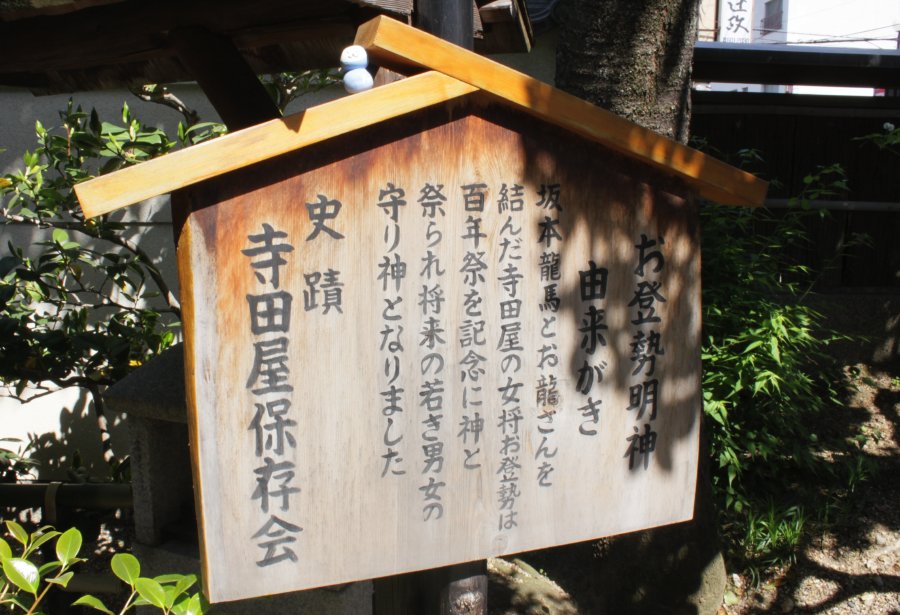 お登勢明神
由来がき
坂本龍馬とお龍さんを
結んだ寺田屋の女将お登勢は
百年祭を記念に神と
祭られ将来の若き男女の
守り神となりました
史蹟
寺田屋保存会